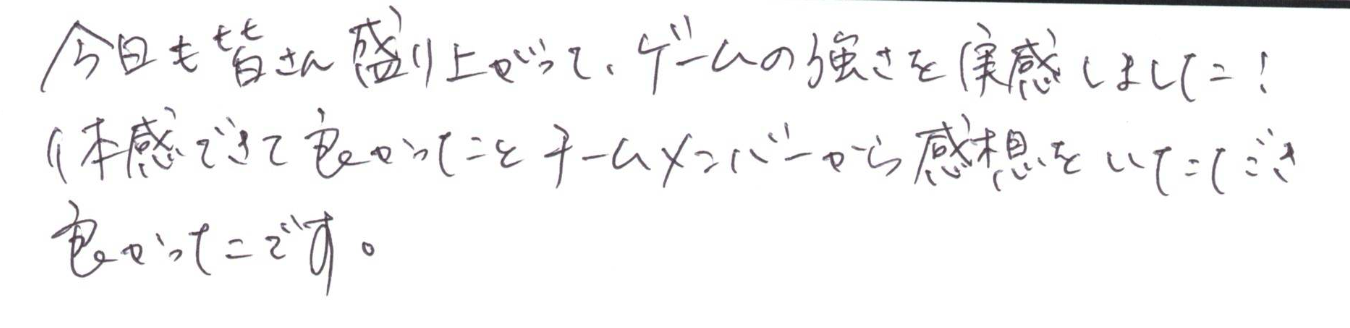 今日も皆さん盛り上がって、ゲームの強さを実感しました！
体感できて良かったとチームメンバーから感想をいただき
良かったです。